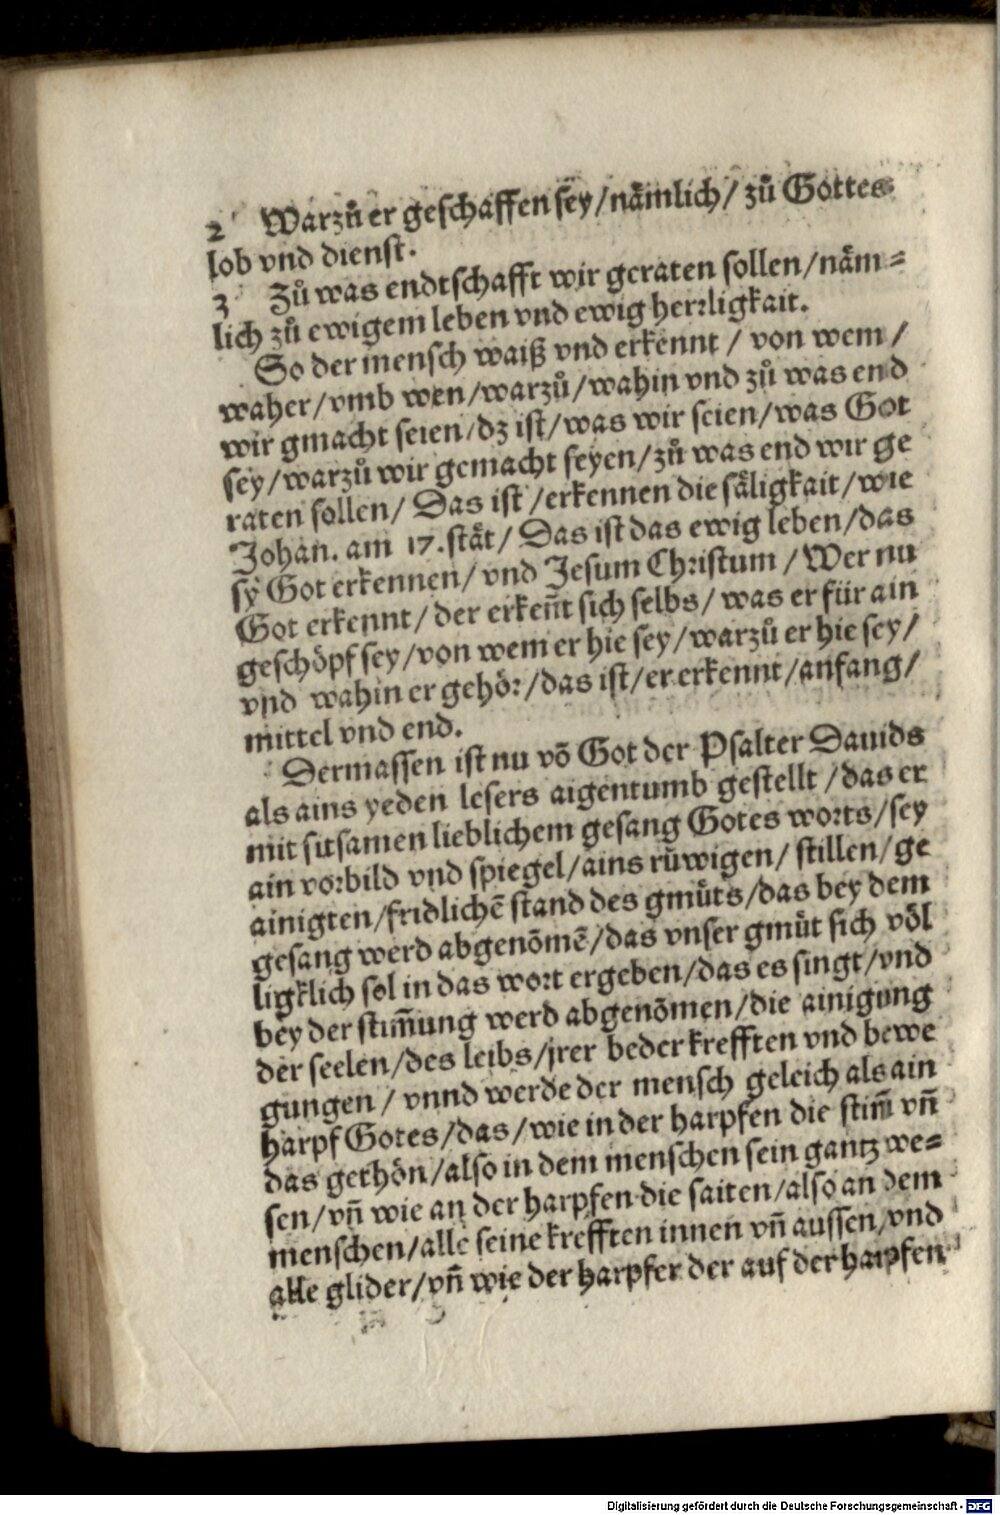 2 Warzuͦ er geschaffen sey/nämlich/ zuͦ Gottes
lob vnd dienst.
3 Zuͦ was endtschafft wir geraten sollen/näm-
lich zuͦ ewigem leben vnd ewig herrligkait.
So der mensch waiß vnd erkennt / von wem /
waher/vmb wen/warzuͦ/wahin vnd zuͦ was end
wir gmacht seien/dz ist/was wir seien/was Got
sey/warzuͦ wir gemacht seyen/zuͦ was end wir ge
raten sollen/ Das ist /erkennen die säligkait/wie
Johan. am 17.stät/ Das ist das ewig leben/das
sy Got erkennen/ vnd Jesum Christum / Wer nu
Got erkennt/ der erkeñt sich selbs/ was er für ain
geschöpf sey/von wem er hie sey/warzuͦ er hie sey/
vnd wahin er gehör/das ist/er erkennt/anfang/
mittel vnd end.
Dermassen ist nu võ Got der Psalter Dauids
als ains yeden lesers aigentumb gestellt /das er
mit sitsamen lieblichem gesang Gotes worts/sey
ain vorbild vnd spiegel/ains ruͤwigen/ stillen/ge
ainigten/fridlichẽ stand des gmuͤts/das bey dem
gesang werd abgenõmẽ/das vnser gmuͤt sich völ
ligklich sol in das wort ergeben/das es singt/vnd
bey der stim̃ung werd abgenõmen/die ainigung
der seelen/des leibs/jrer beder krefften vnd bewe
gungen / vnnd werde der mensch geleich als ain
harpf Gotes/das/wie in der harpfen die stim̃ vñ
das gethön/also in dem menschen sein gantz we-
sen/vñ wie an der harpfen die saiten/also an dem
menschen/alle seine krefften innen vñ aussen/vnd
alle glider/vñ wie der harpfer der auf der harpfen
Digitalisierung gefördert durch die Deutsche Forschungsgemeinschaft - DFG